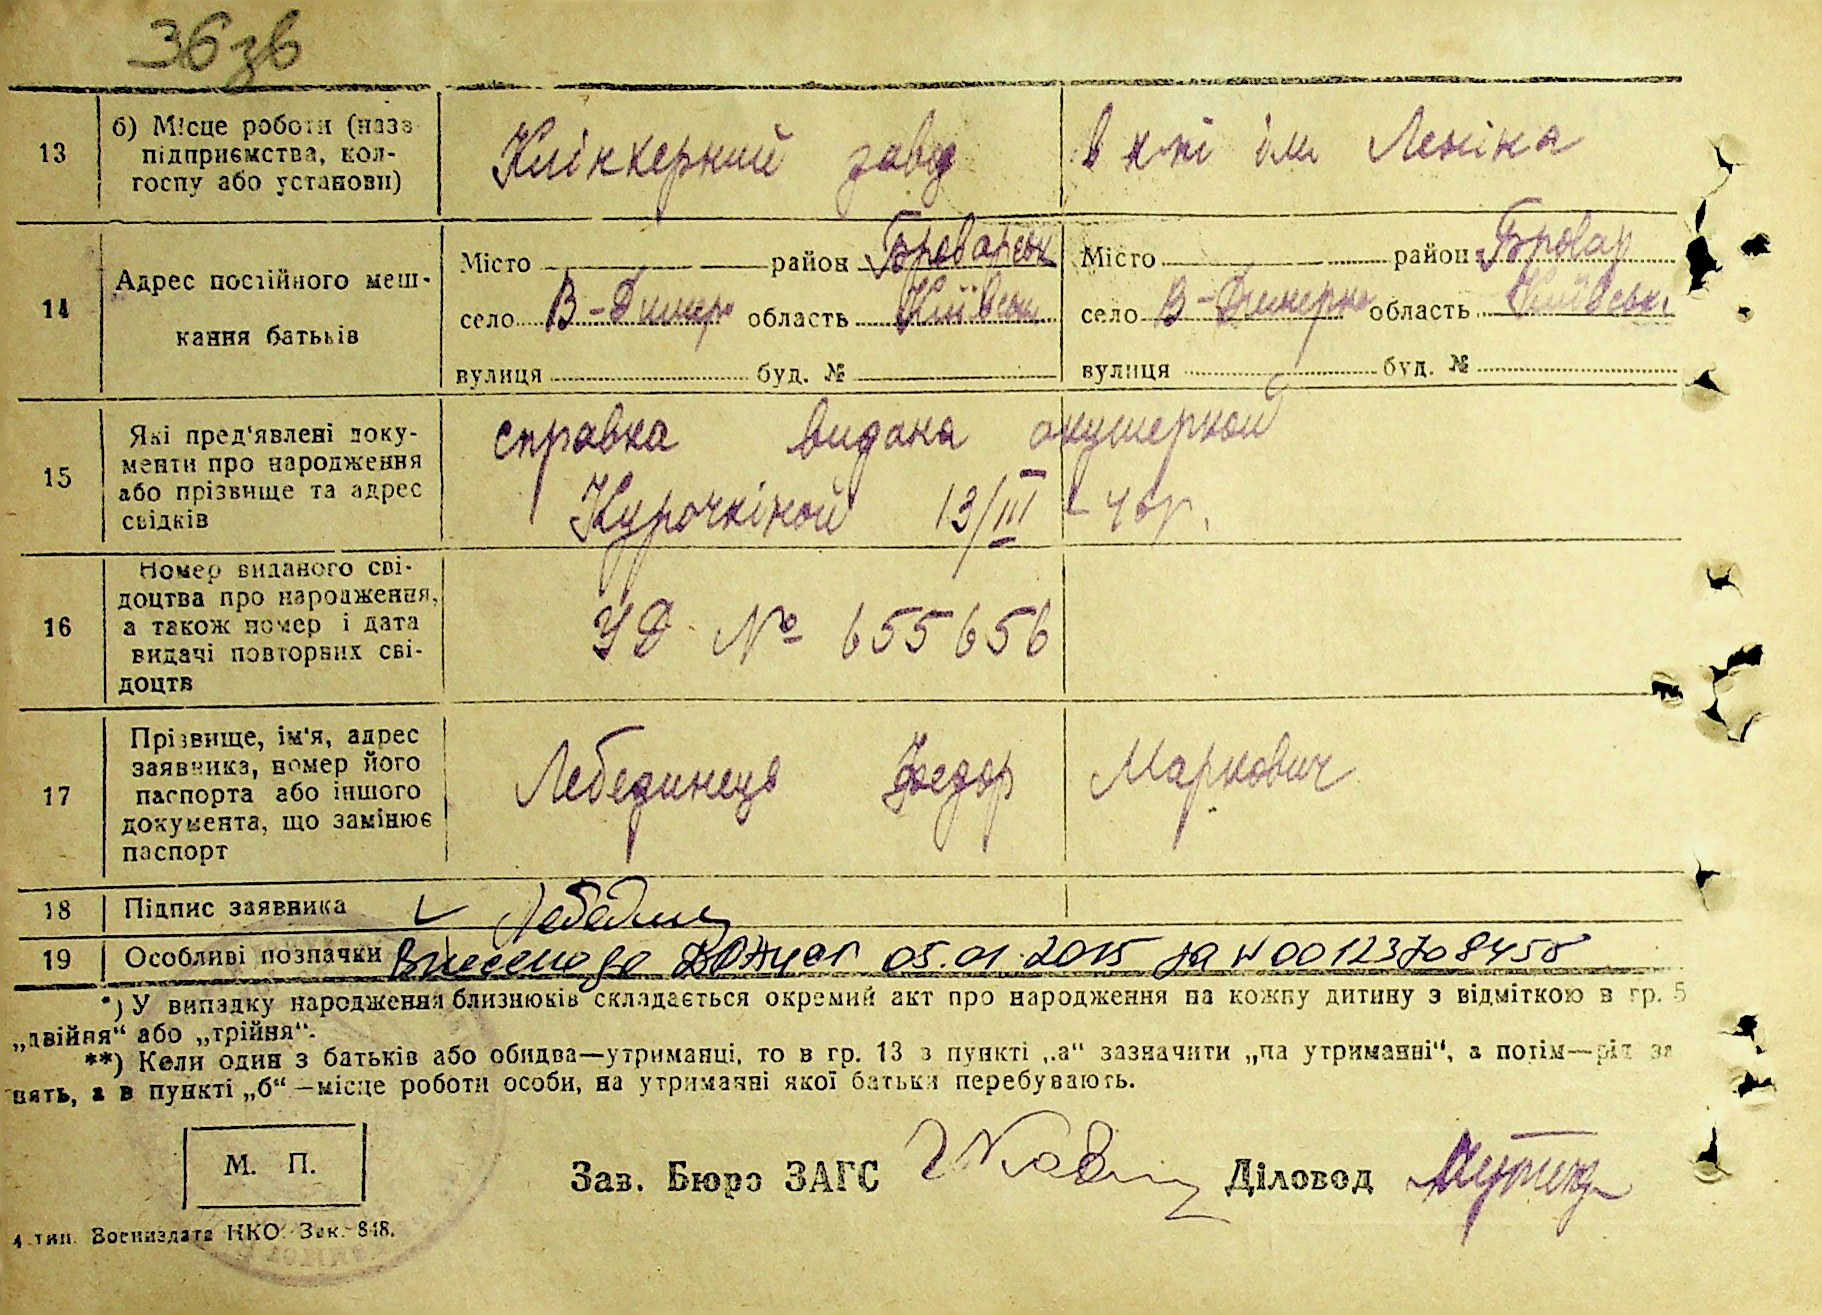 36зв
13
б) Місце роботи (назв
підприємства, кол-
госпу або установи)
Клінкерний завод
в к-пі ім Леніна
14
Адрес постійного меш-
кання батьків
Місто район Броварськ
село В-Димерк область Київськ
вулиця буд. №
Місто район Бровар
село В-Димерка область Київськ
вулиця буд. №
15
Які пред'явлені доку-
менти про народження
або прізвище та адрес
свідків
справка видана акушеркой
Курочкіной 13/III - 46р.
16
Номер виданого сві-
доцтва про народження,
а також номер і дата
видачі повторних сві-
доцтв
УД № 655656
17
Прізвище, ім'я, адрес
заявника, номер його
паспорта або іншого
документа, що замінює
паспорт
Лебединець Федор Маркович
18
Підпис заявника
Лебедин
19
Особливі позначки
Внесено до ДРАЦСГ 05.01.2015 за N 00123708458
*) У випадку народження близнюків складається окремий акт про народження на кожну дитину з відміткою в гр. 5
„двійня“ або „трійня“.
**) Коли один з батьків або обидва—утриманці, то в гр. 13 в пункті „а“ зазначити „на утриманні“, а потім—рід за
нять, а в пункті „б“—місце роботи особи, на утриманні якої батьки перебувають.
М. П.
Зав. Бюро ЗАГС
Діловод
4 тип. Воениздата НКО. Зак. 848.